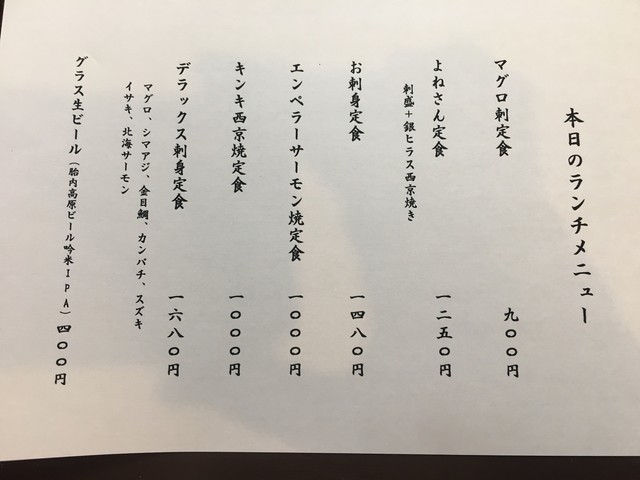 本日のランチメニュー
マグロ刺定食 九〇〇円
よねさん定食 一二五〇円
刺盛＋銀ヒラス西京焼き
お刺身定食 一四八〇円
エンペラーサーモン焼定食 一〇〇〇円
キンキ西京焼定食 一〇〇〇円
デラックス刺身定食 一六八〇円
マグロ、シマアジ、金目鯛、カンパチ、スズキ
イサキ、北海サーモン
グラス生ビール（胎内高原ビール吟米ＩＰＡ）四〇〇円